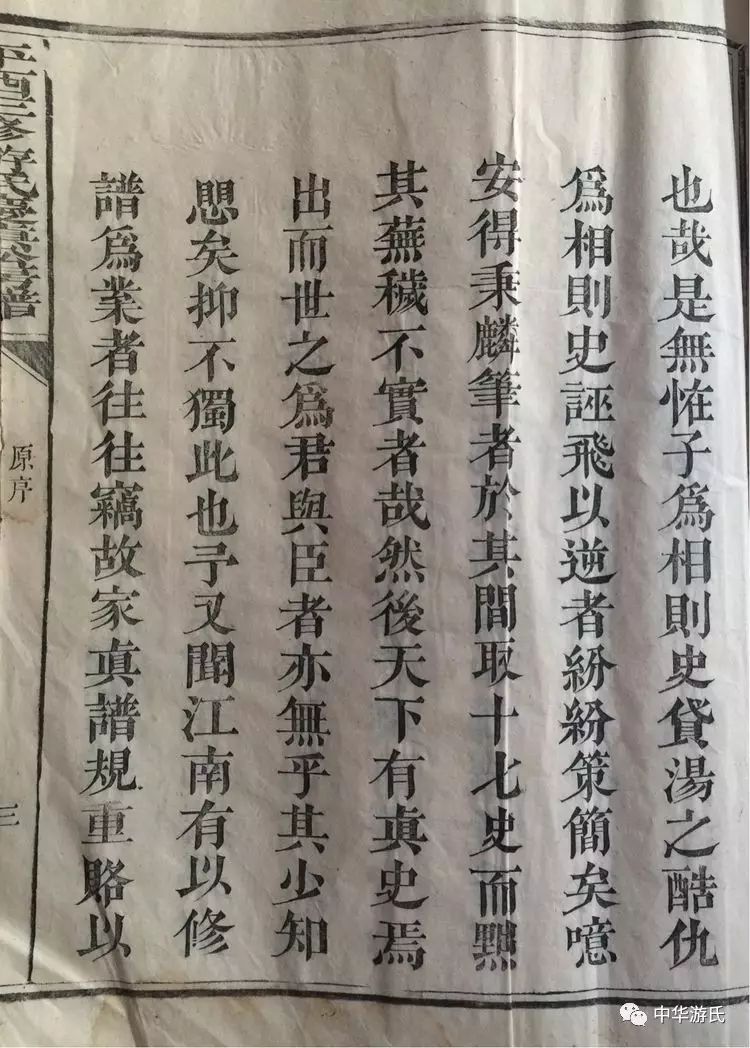 也哉是無恠子爲相則史貸湯之酷仇
爲相則史誣飛以逆者紛紛策簡矣噫
安得秉麟筆者於其間取十七史而㸃
其蕪穢不實者哉然後天下有眞史焉
出而世之爲君與臣者亦無乎其少知
愳矣抑不獨此也予又聞江南有以修
譜爲業者往往竊故家眞譜規重賂以
原序
三
中华游氏